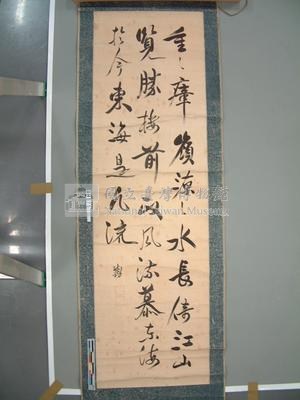 重々瘴嶺薄水長倚江山
覽勝接前風流慕東海
於今東海是風流
國立臺灣博物館
National Taiwan Museum